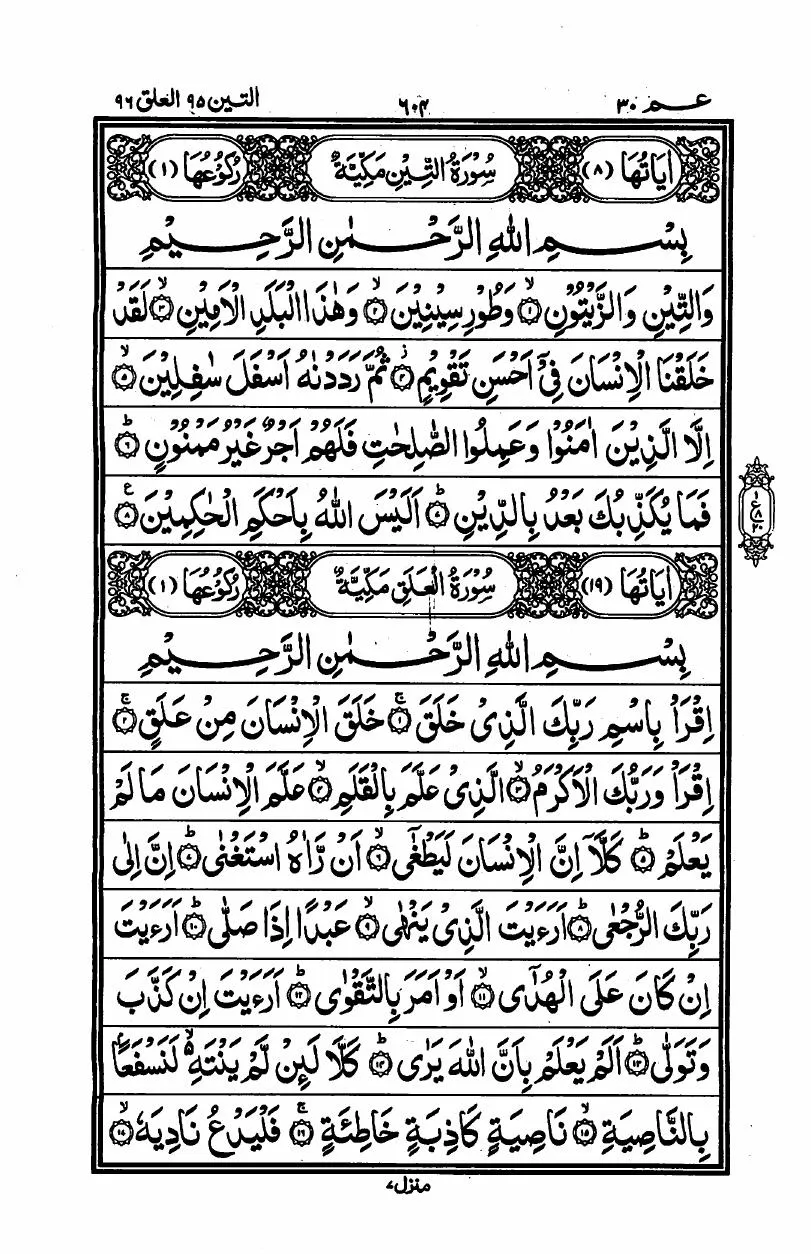 عـــم ۳۰
۶۰۴
التـين ۹۵ العلق ۹۶
اٰيَاتُهَا (۸) سُوْرَةُ التِّيْنِ مَكِّيَّةٌ رُكُوْعُهَا (۱)
بِسْمِ اللّٰهِ الرَّحْمٰنِ الرَّحِيْمِ
وَالتِّيْنِ وَالزَّيْتُوْنِ ۙ‏﴿۱﴾ وَطُوْرِ سِيْنِيْنَ ۙ‏﴿۲﴾ وَهٰذَا الْبَلَدِ الْاَمِيْنِ ۙ‏﴿۳﴾ لَقَدْ
خَلَقْنَا الْاِنْسَانَ فِىْۤ اَحْسَنِ تَقْوِيْمٍ ﴿۴﴾ ثُمَّ رَدَدْنٰهُ اَسْفَلَ سٰفِلِيْنَ ۙ‏﴿۵﴾
اِلَّا الَّذِيْنَ اٰمَنُوْا وَعَمِلُوا الصّٰلِحٰتِ فَلَهُمْ اَجْرٌ غَيْرُ مَمْنُوْنٍ ؕ‏﴿۶﴾
فَمَا يُكَذِّبُكَ بَعْدُ بِالدِّيْنِ ؕ‏﴿۷﴾ اَلَيْسَ اللّٰهُ بِاَحْكَمِ الْحٰكِمِيْنَ ﴿۸﴾ ع
۱
ع
۸
۲۰
اٰيَاتُهَا (۱۹) سُوْرَةُ الْعَلَقِ مَكِّيَّةٌ رُكُوْعُهَا (۱)
بِسْمِ اللّٰهِ الرَّحْمٰنِ الرَّحِيْمِ
اِقْرَاْ بِاسْمِ رَبِّكَ الَّذِىْ خَلَقَ ۚ‏﴿۱﴾ خَلَقَ الْاِنْسَانَ مِنْ عَلَقٍ ۚ‏﴿۲﴾
اِقْرَاْ وَرَبُّكَ الْاَكْرَمُ ۙ‏﴿۳﴾ الَّذِىْ عَلَّمَ بِالْقَلَمِ ۙ‏﴿۴﴾ عَلَّمَ الْاِنْسَانَ مَا لَمْ
يَعْلَمْ ؕ‏﴿۵﴾ كَلَّاۤ اِنَّ الْاِنْسَانَ لَيَطْغٰٓى ۙ‏﴿۶﴾ اَنْ رَّاٰهُ اسْتَغْنٰى ؕ‏﴿۷﴾ اِنَّ اِلٰى
رَبِّكَ الرُّجْعٰى ؕ‏﴿۸﴾ اَرَءَيْتَ الَّذِىْ يَنْهٰى ۙ‏﴿۹﴾ عَبْدًا اِذَا صَلّٰى ؕ‏﴿۱۰﴾ اَرَءَيْتَ
اِنْ كَانَ عَلَى الْهُدٰٓى ۙ‏﴿۱۱﴾ اَوْ اَمَرَ بِالتَّقْوٰى ؕ‏﴿۱۲﴾ اَرَءَيْتَ اِنْ كَذَّبَ
وَتَوَلّٰى ؕ‏﴿۱۳﴾ اَلَمْ يَعْلَمْ بِاَنَّ اللّٰهَ يَرٰى ؕ‏﴿۱۴﴾ كَلَّا لَئِنْ لَّمْ يَنْتَهِ ۙ۬ لَنَسْفَعًۢا
بِالنَّاصِيَةِ ۙ‏﴿۱۵﴾ نَاصِيَةٍ كَاذِبَةٍ خَاطِئَةٍ ۚ‏﴿۱۶﴾ فَلْيَدْعُ نَادِيَهٗ ۙ‏﴿۱۷﴾
منزل ۷